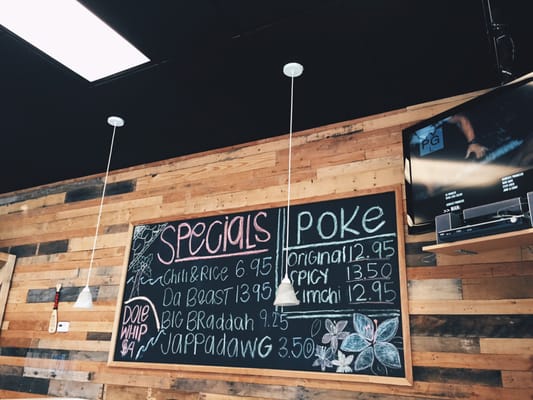 SPECIALS
CHILI & RICE 6.95
DA BEAST 13.95
BIG BRADDAH 9.25
JAPPADAWG 3.50
DOLE
WHIP
$4
POKE
ORIGINAL 12.95
SPICY 13.50
KIMCHI 12.95
PG